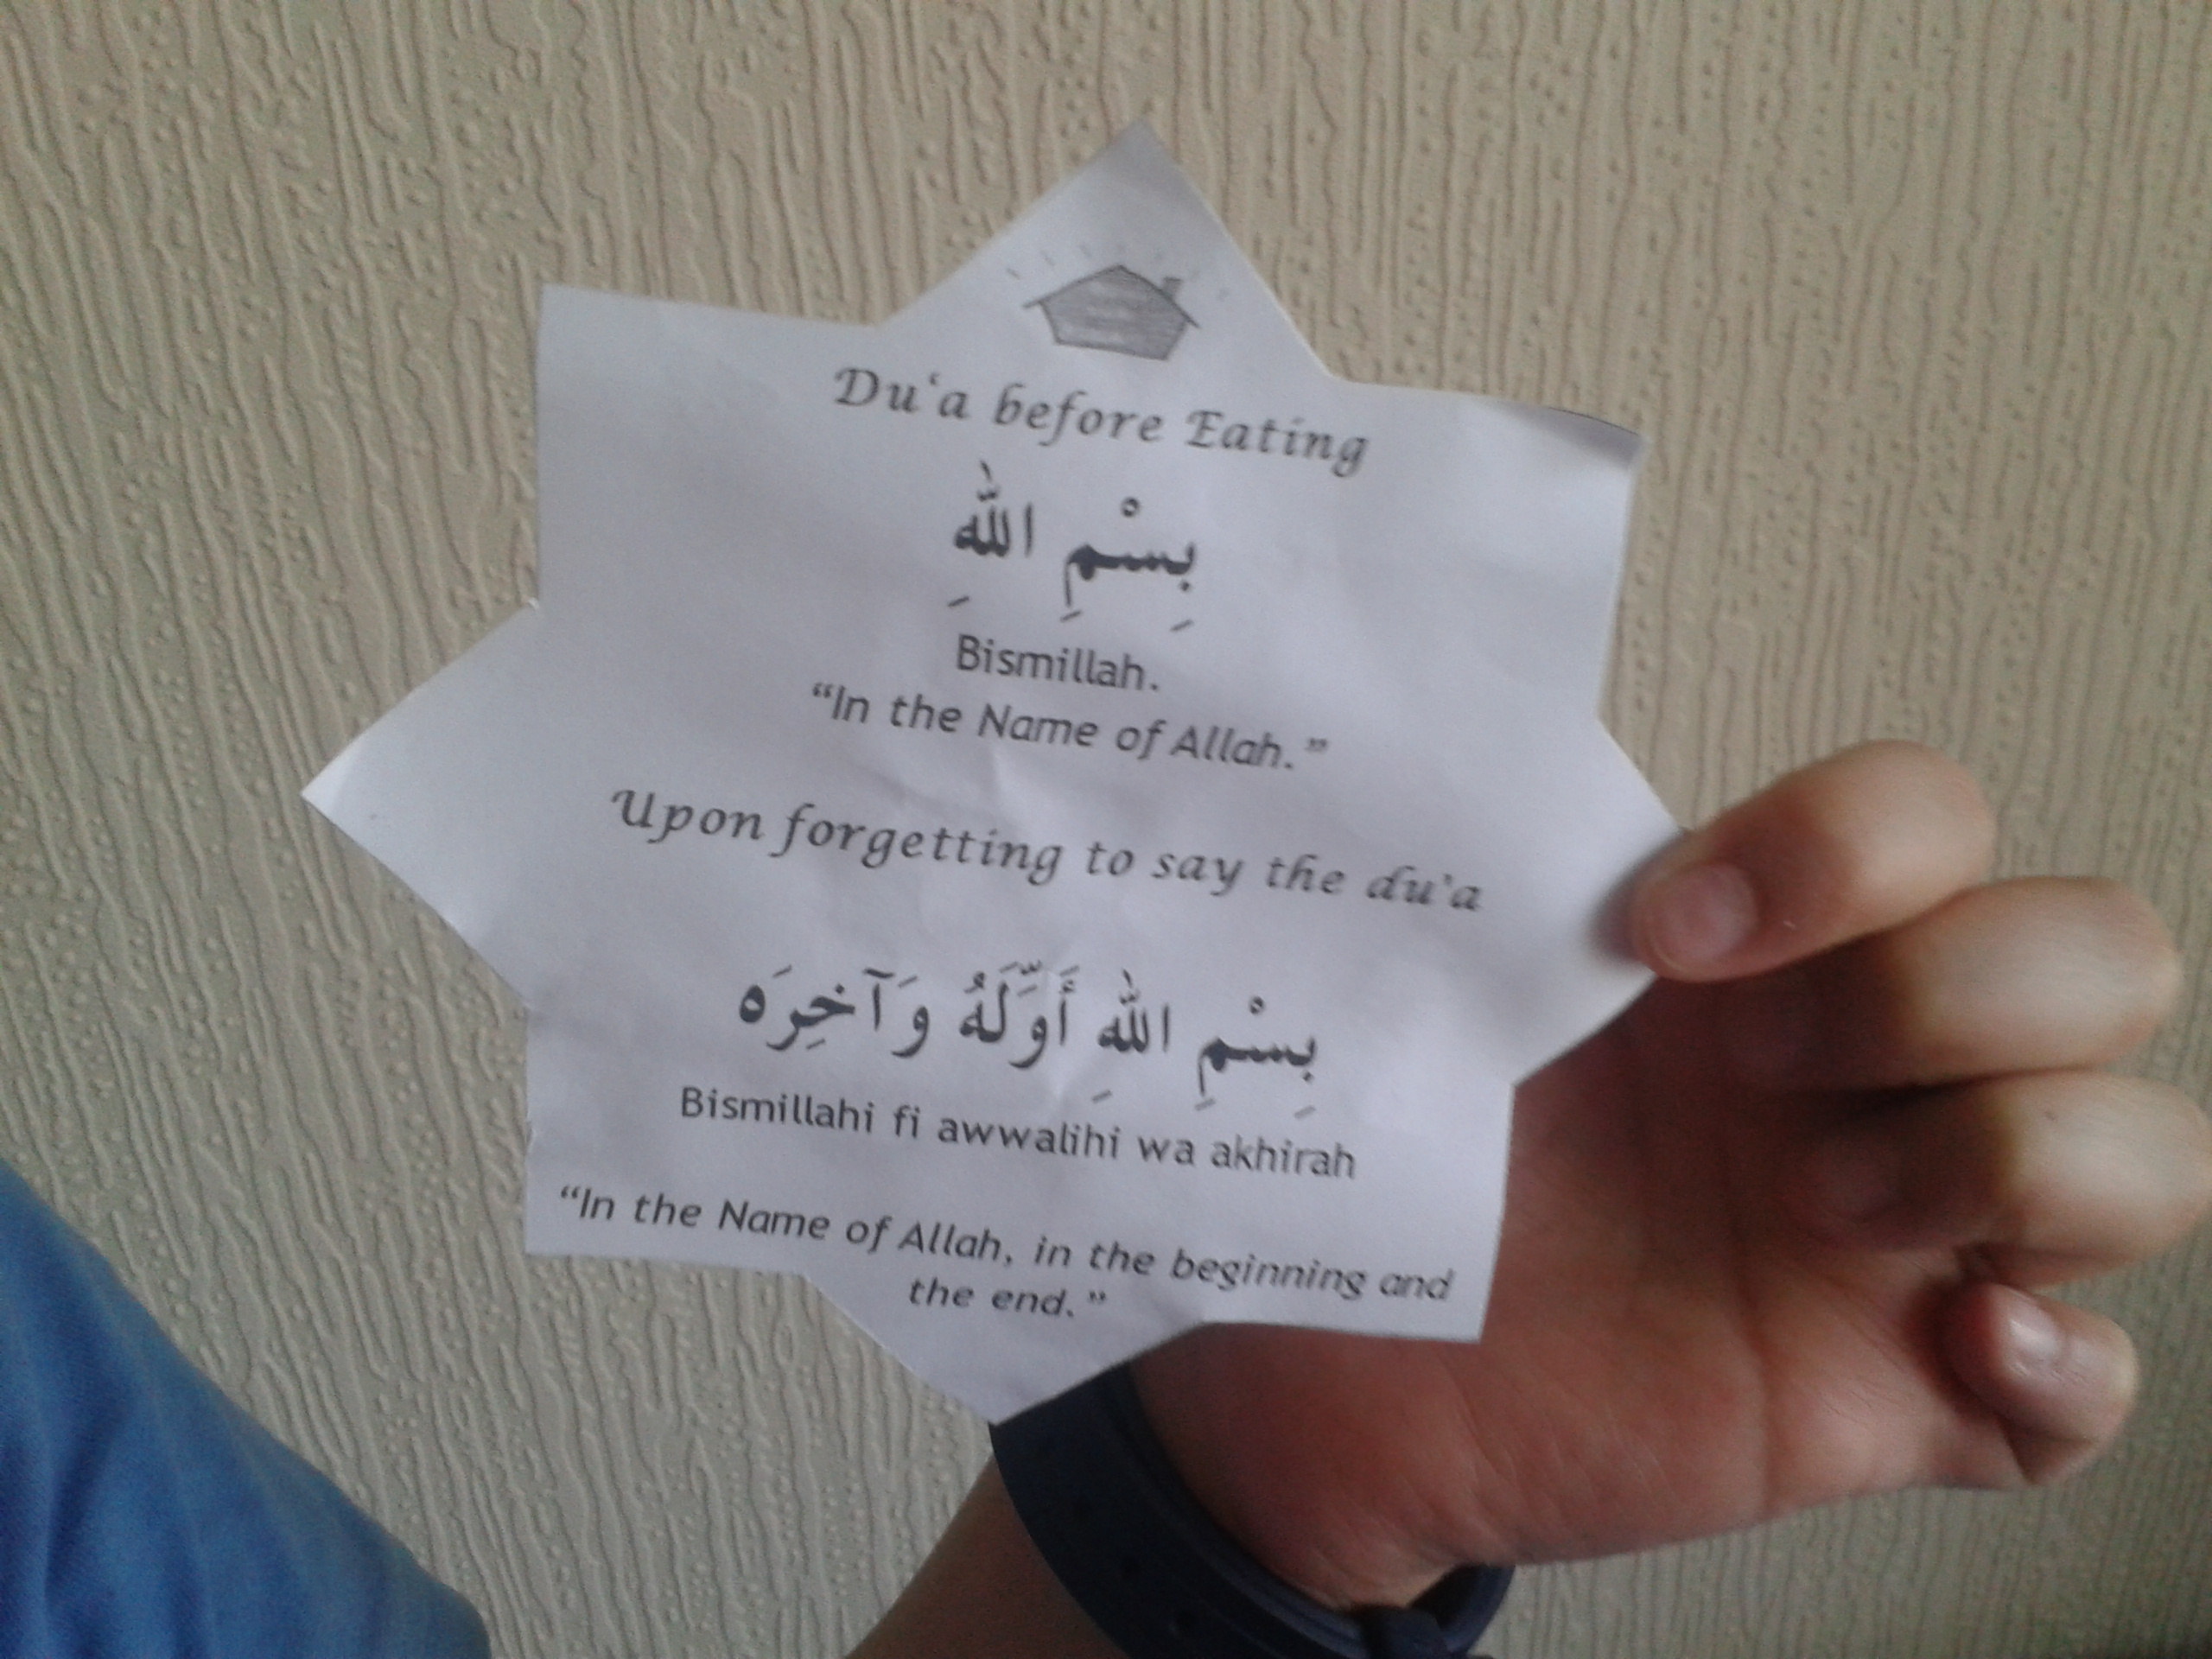 Du‘a before Eating
بِسْمِ اللّٰهِ
Bismillah.
“In the Name of Allah.”
Upon forgetting to say the du'a
بِسْمِ اللّٰهِ أَوَّلَهُ وَآخِرَه
Bismillahi fi awwalihi wa akhirah
“In the Name of Allah, in the beginning and
the end.”